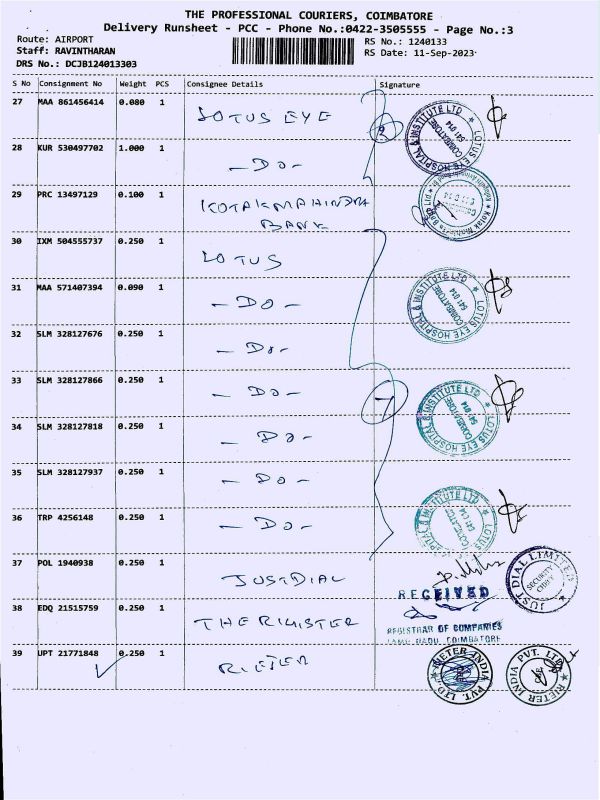 THE PROFESSIONAL COURIERS, COIMBATORE
Delivery Runsheet - PCC - Phone No.:0422-3505555 - Page No.:3
Route: AIRPORT
Staff: RAVINTHARAN
DRS No.: DCJB124013303
RS No.: 1240133
RS Date: 11-Sep-2023
S No Consignment No Weight PCS Consignee Details Signature
27 MAA 861456414 0.080 1 LOTUS EYE
2
LOTUS EYE HOSPITAL & INSTITUTE LTD COIMBATORE 641 014
28 KUR 530497702 1.000 1 - DO -
29 PRC 13497129 0.100 1 KOTAK MAHINDRA
BANK
Kotak Mahindra Bank Ltd.
30 IXM 504555737 0.250 1 LOTUS
31 MAA 571407394 0.090 1 - DO -
LOTUS EYE HOSPITAL & INSTITUTE LTD COIMBATORE 641 014
32 SLM 328127676 0.250 1 - DO -
33 SLM 328127866 0.250 1 - DO -
LOTUS EYE HOSPITAL & INSTITUTE LTD COIMBATORE 641 014
34 SLM 328127818 0.250 1 - DO -
35 SLM 328127937 0.250 1 - DO -
36 TRP 4256148 0.250 1 - DO -
LOTUS EYE HOSPITAL & INSTITUTE LTD COIMBATORE 641 014
37 POL 1940938 0.250 1 JUSTDIAL
JUST DIAL LIMITED SECURITY
RECEIVED
38 EDQ 21515759 0.250 1 THE RIGISTER
REGISTRAR OF COMPANIES
TAMIL NADU, COIMBATORE
39 UPT 21771848 0.250 1 RIETER
RIETER INDIA PVT. LTD.
RIETER INDIA PVT. LTD.